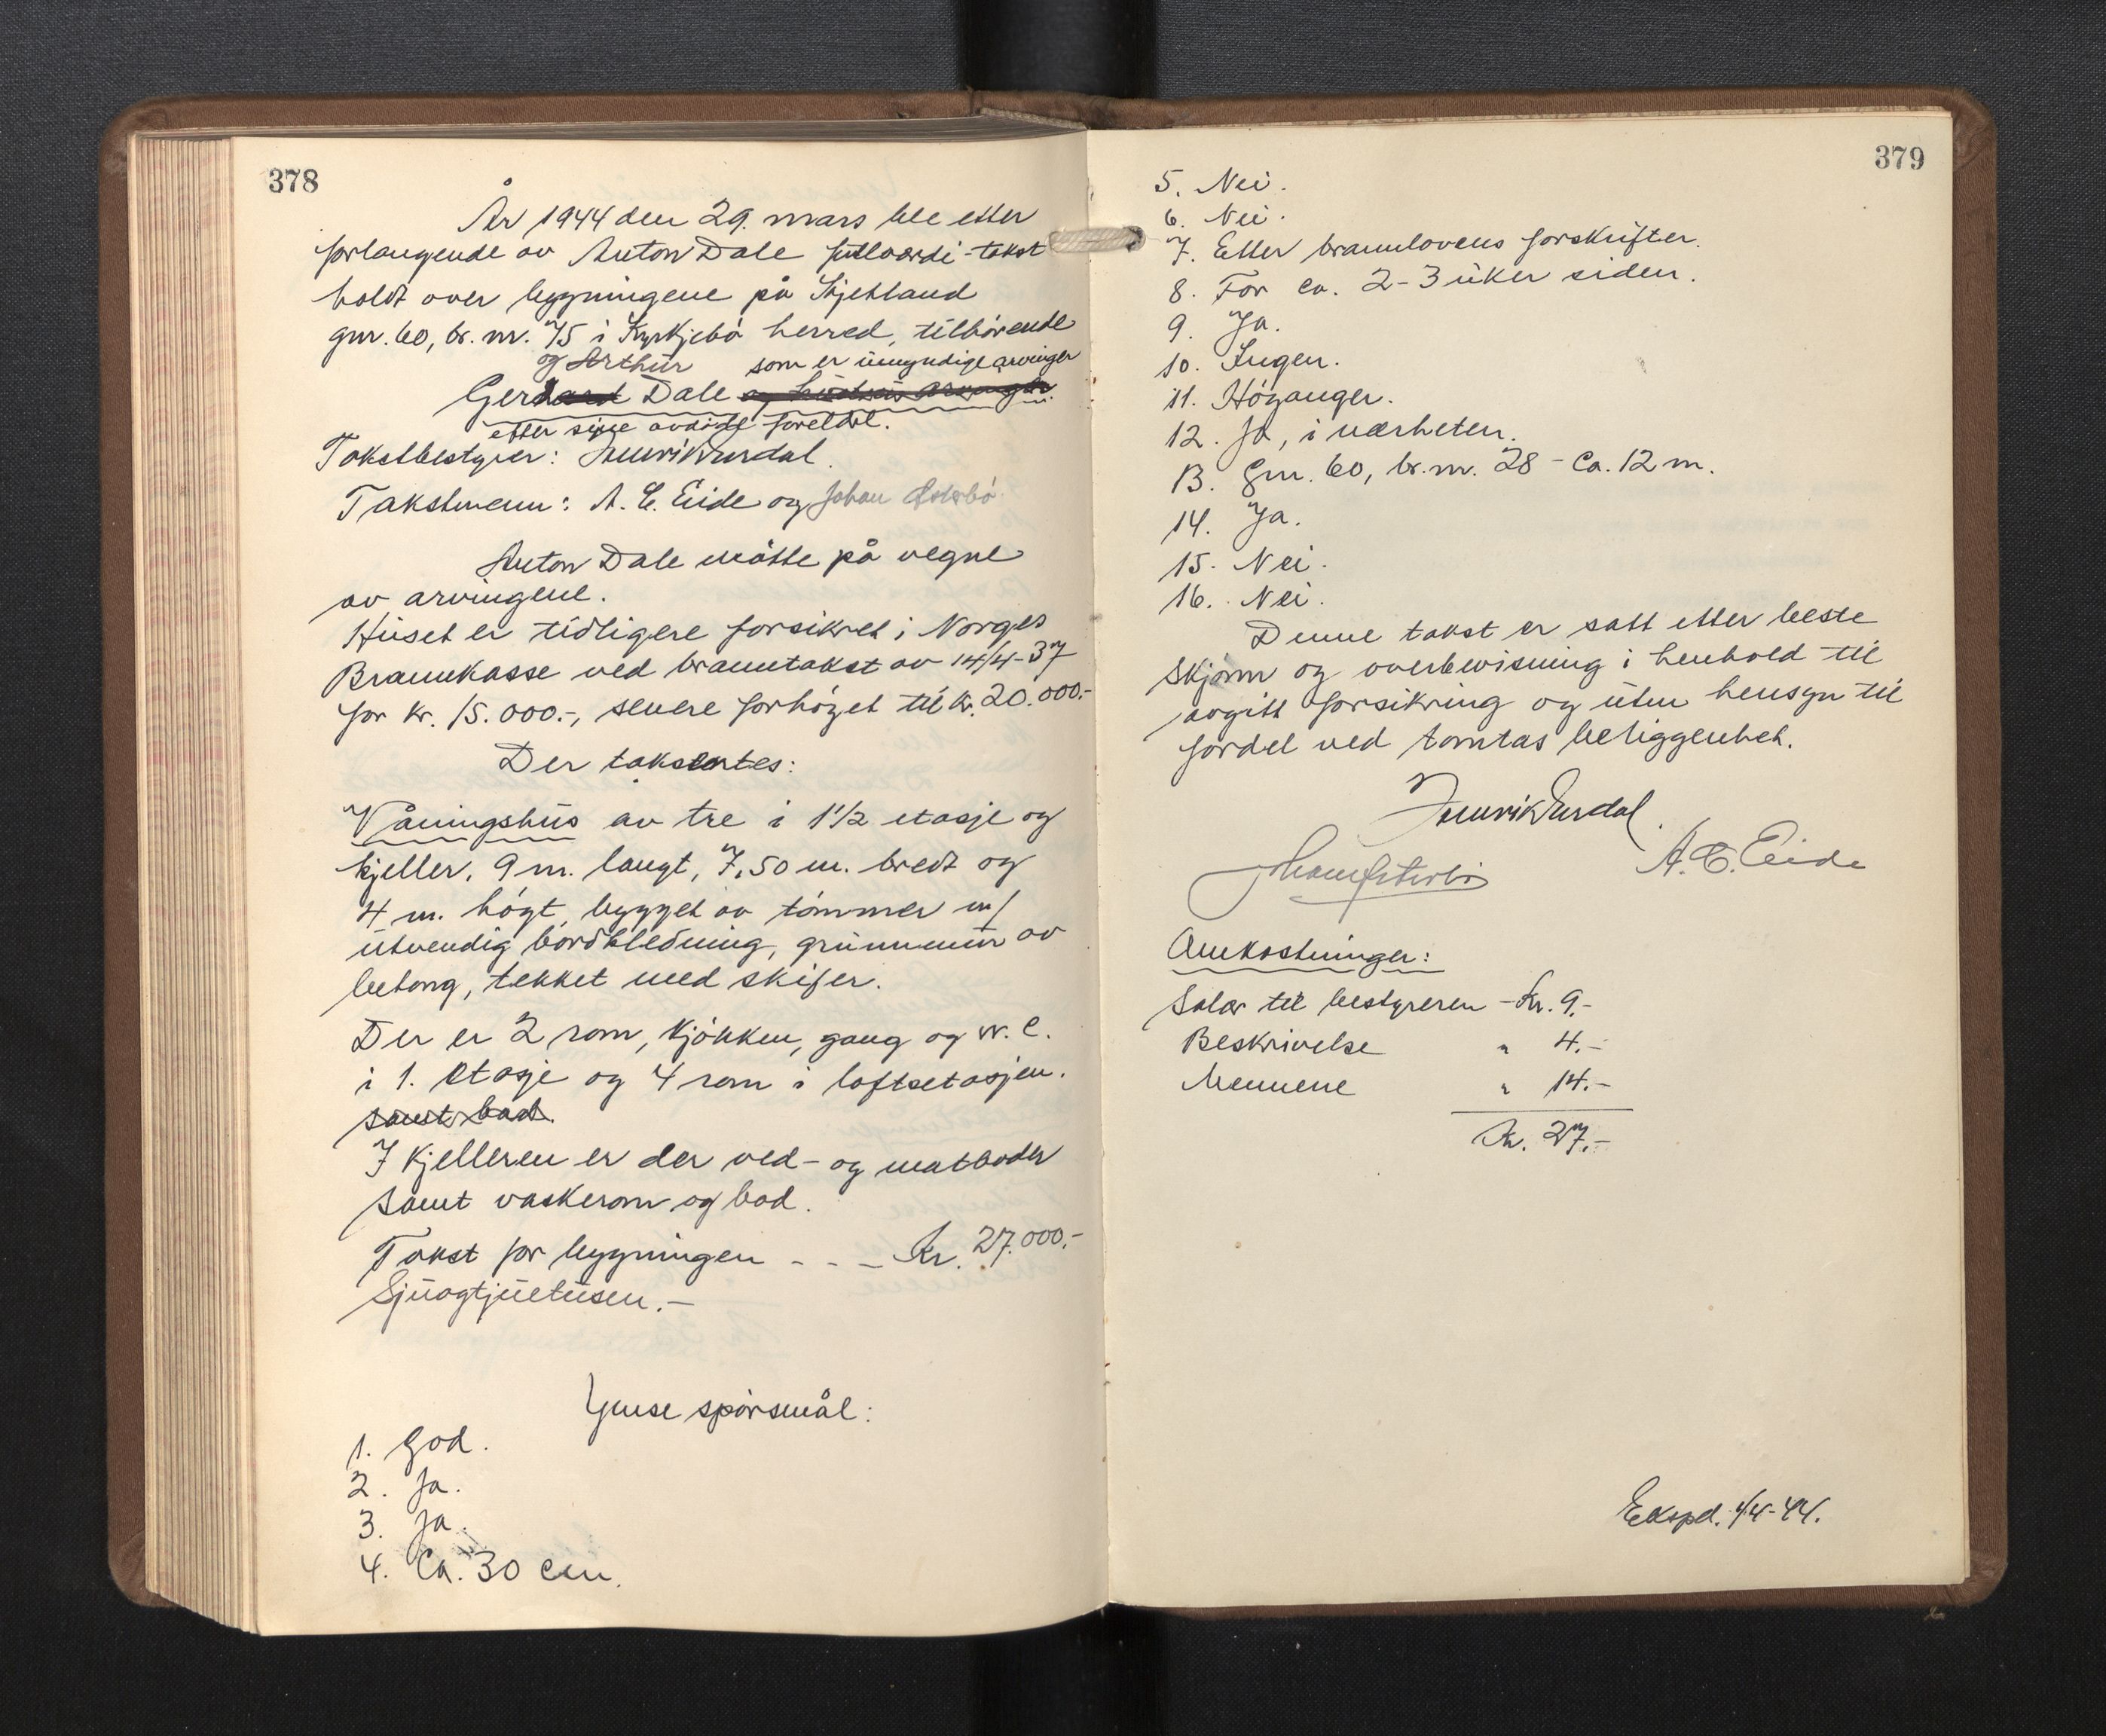 378
År 1944 den 29. mars ble etter
forlangende av Anton Dale fullverdi-takst
holdt over bygningene på
gnr. 60, br. nr. 75 i Kyrkjebø herred, tilhørende
og Arthur som er umyndige arvinger
Ger Dale og arvinger
etter sine avdøde foreldre.
Takstbestyrer:
Takstmenn: A. E. Eide og Johan Østerbø
Anton Dale møtte på vegne
av arvingene.
Huset er tidligere forsikret i Norges
Brannkasse ved branntakst av 14/4-37
for kr. 15.000.-, senere forhøyet til kr. 20.000.-
Der takseres:
Våningshus av tre i 1 1/2 etasje og
kjeller. 9 m. langt, 7,50 m. bredt og
4 m. høgt, bygget av tømmer m/
utvendig bordkledning, grunnmur av
betong, tekket med skifer.
Der er 2 rom, kjøkken, gang og w.c.
i 1. etasje og 4 rom i loftsetasjen.
samt bad.
I kjelleren er der ved- og matboder
samt vaskerom og bad.
Takst for bygningen - - - Kr. 27.000.-
Sjuogtjuetusen.-
Ymse spørsmål:
1. God.
2. Ja.
3. Ja.
4. Ca. 30 cm.
379
5. Nei.
6. Nei.
7. Etter brannlovens forskrifter.
8. For ca. 2-3 uker siden.
9. Ja.
10. Ingen.
11. Høyanger.
12. Ja, i nærheten.
13. Gnr. 60, br.nr. 28 - ca. 12 m.
14. Ja.
15. Nei.
16. Nei.
Denne takst er satt etter beste
skjønn og overbevisning i henhold til
avgitt forsikring og uten hensyn til
fordel ved tomtas beliggenhet.
Johan Østerbø A. E. Eide
Omkostninger:
Salær til bestyreren - Kr. 9.-
Beskrivelse " 4.-
Mennene " 14.-
Kr. 27.-
Ekspd. 1/4-44.